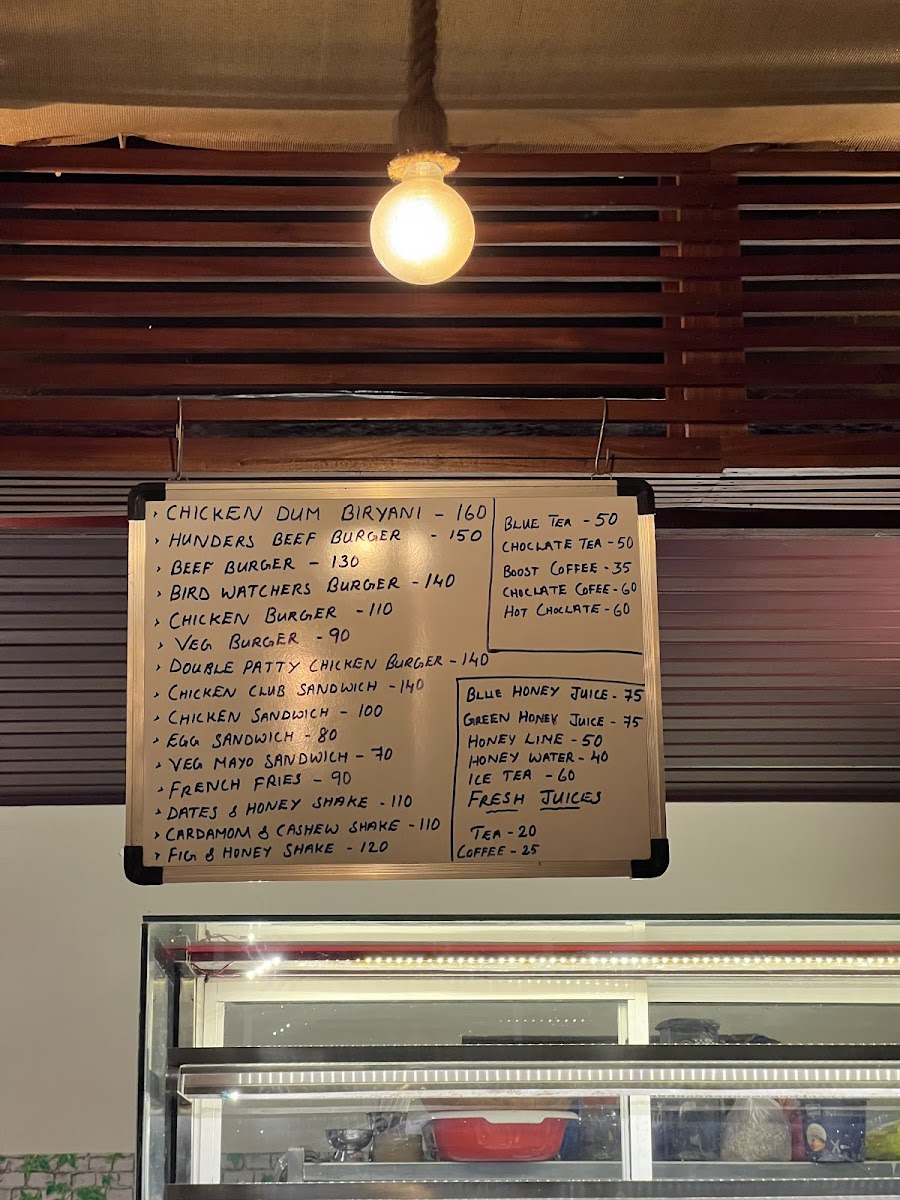 › CHICKEN DUM BIRYANI - 160
› HUNDERS BEEF BURGER - 150
› BEEF BURGER - 130
› BIRD WATCHERS BURGER - 140
› CHICKEN BURGER - 110
› VEG BURGER - 90
› DOUBLE PATTY CHICKEN BURGER - 140
› CHICKEN CLUB SANDWICH - 140
› CHICKEN SANDWICH - 100
› EGG SANDWICH - 80
› VEG MAYO SANDWICH - 70
› FRENCH FRIES - 90
› DATES & HONEY SHAKE - 110
› CARDAMOM & CASHEW SHAKE - 110
› FIG & HONEY SHAKE - 120
BLUE TEA - 50
CHOCLATE TEA - 50
BOOST COFFEE - 35
CHOCLATE COFEE - 60
HOT CHOCLATE - 60
BLUE HONEY JUICE - 75
GREEN HONEY JUICE - 75
HONEY LIME - 50
HONEY WATER - 40
ICE TEA - 60
FRESH JUICES
TEA - 20
COFFEE - 25